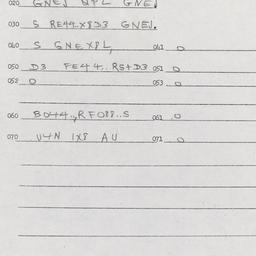 020 GNEJ
030 S RE44.X8D3 GNEJ.
040 S GNEXPL, 041 O
050 D3 FE44. RS+D3 051 O
052 O 053 O
060 8044., RF088..S 061 O
070 U4N 1X8 AU 071 O